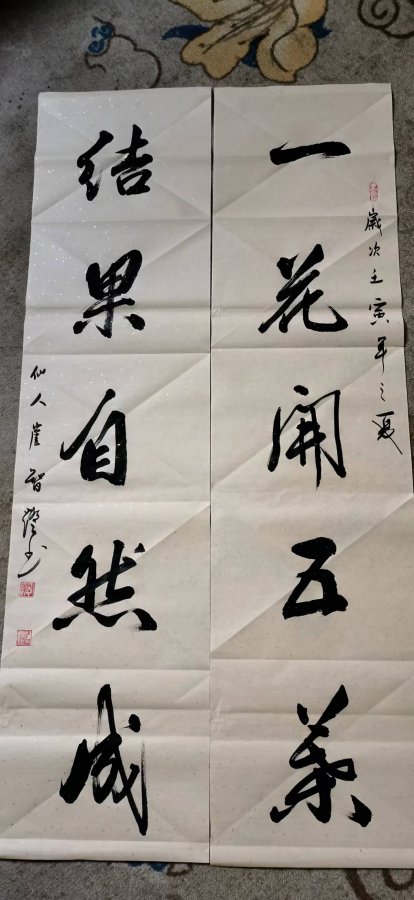 歲次壬寅年之夏
一花開五葉
結果自然成
仙人崖智澄书